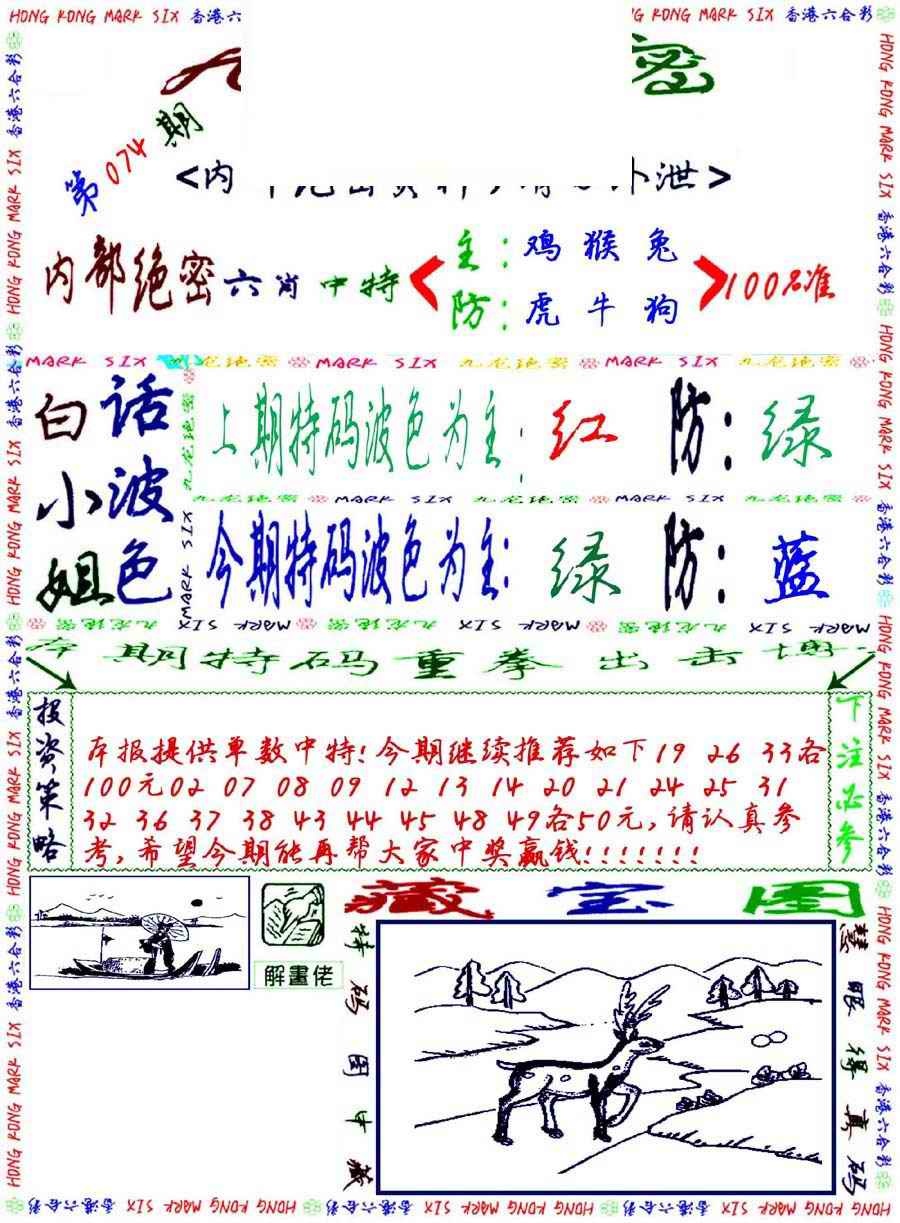 HONG KONG MARK SIX 香港六合彩
G KONG MARK SIX 香港六合彩
密
第074期
<内
外泄>
内部绝密六肖中特
主：鸡猴兔
防：虎牛狗
100%准
MARK SIX 九龙绝密 MARK SIX 九龙绝密 MARK SIX 九龙绝密
白话小波姐色
上期特码波色为主：红 防：绿
九龙绝密 MARK SIX 九龙绝密 MARK SIX
今期特码波色为主：绿 防：蓝
MARK SIX 九龙绝密 MARK SIX 九龙绝密 MARK SIX
本期特码重拳出击
投资策略
本报提供单数中特！今期继续推荐如下19 26 33各
100元02 07 08 09 12 13 14 20 21 24 25 31
32 36 37 38 43 44 45 48 49各50元，请认真参
考，希望今期能再帮大家中奖赢钱！！！！！！！
下注必参
解畫佬
藏宝图
特码图中藏
慧眼得真码
HONG KONG MARK SIX 香港六合彩